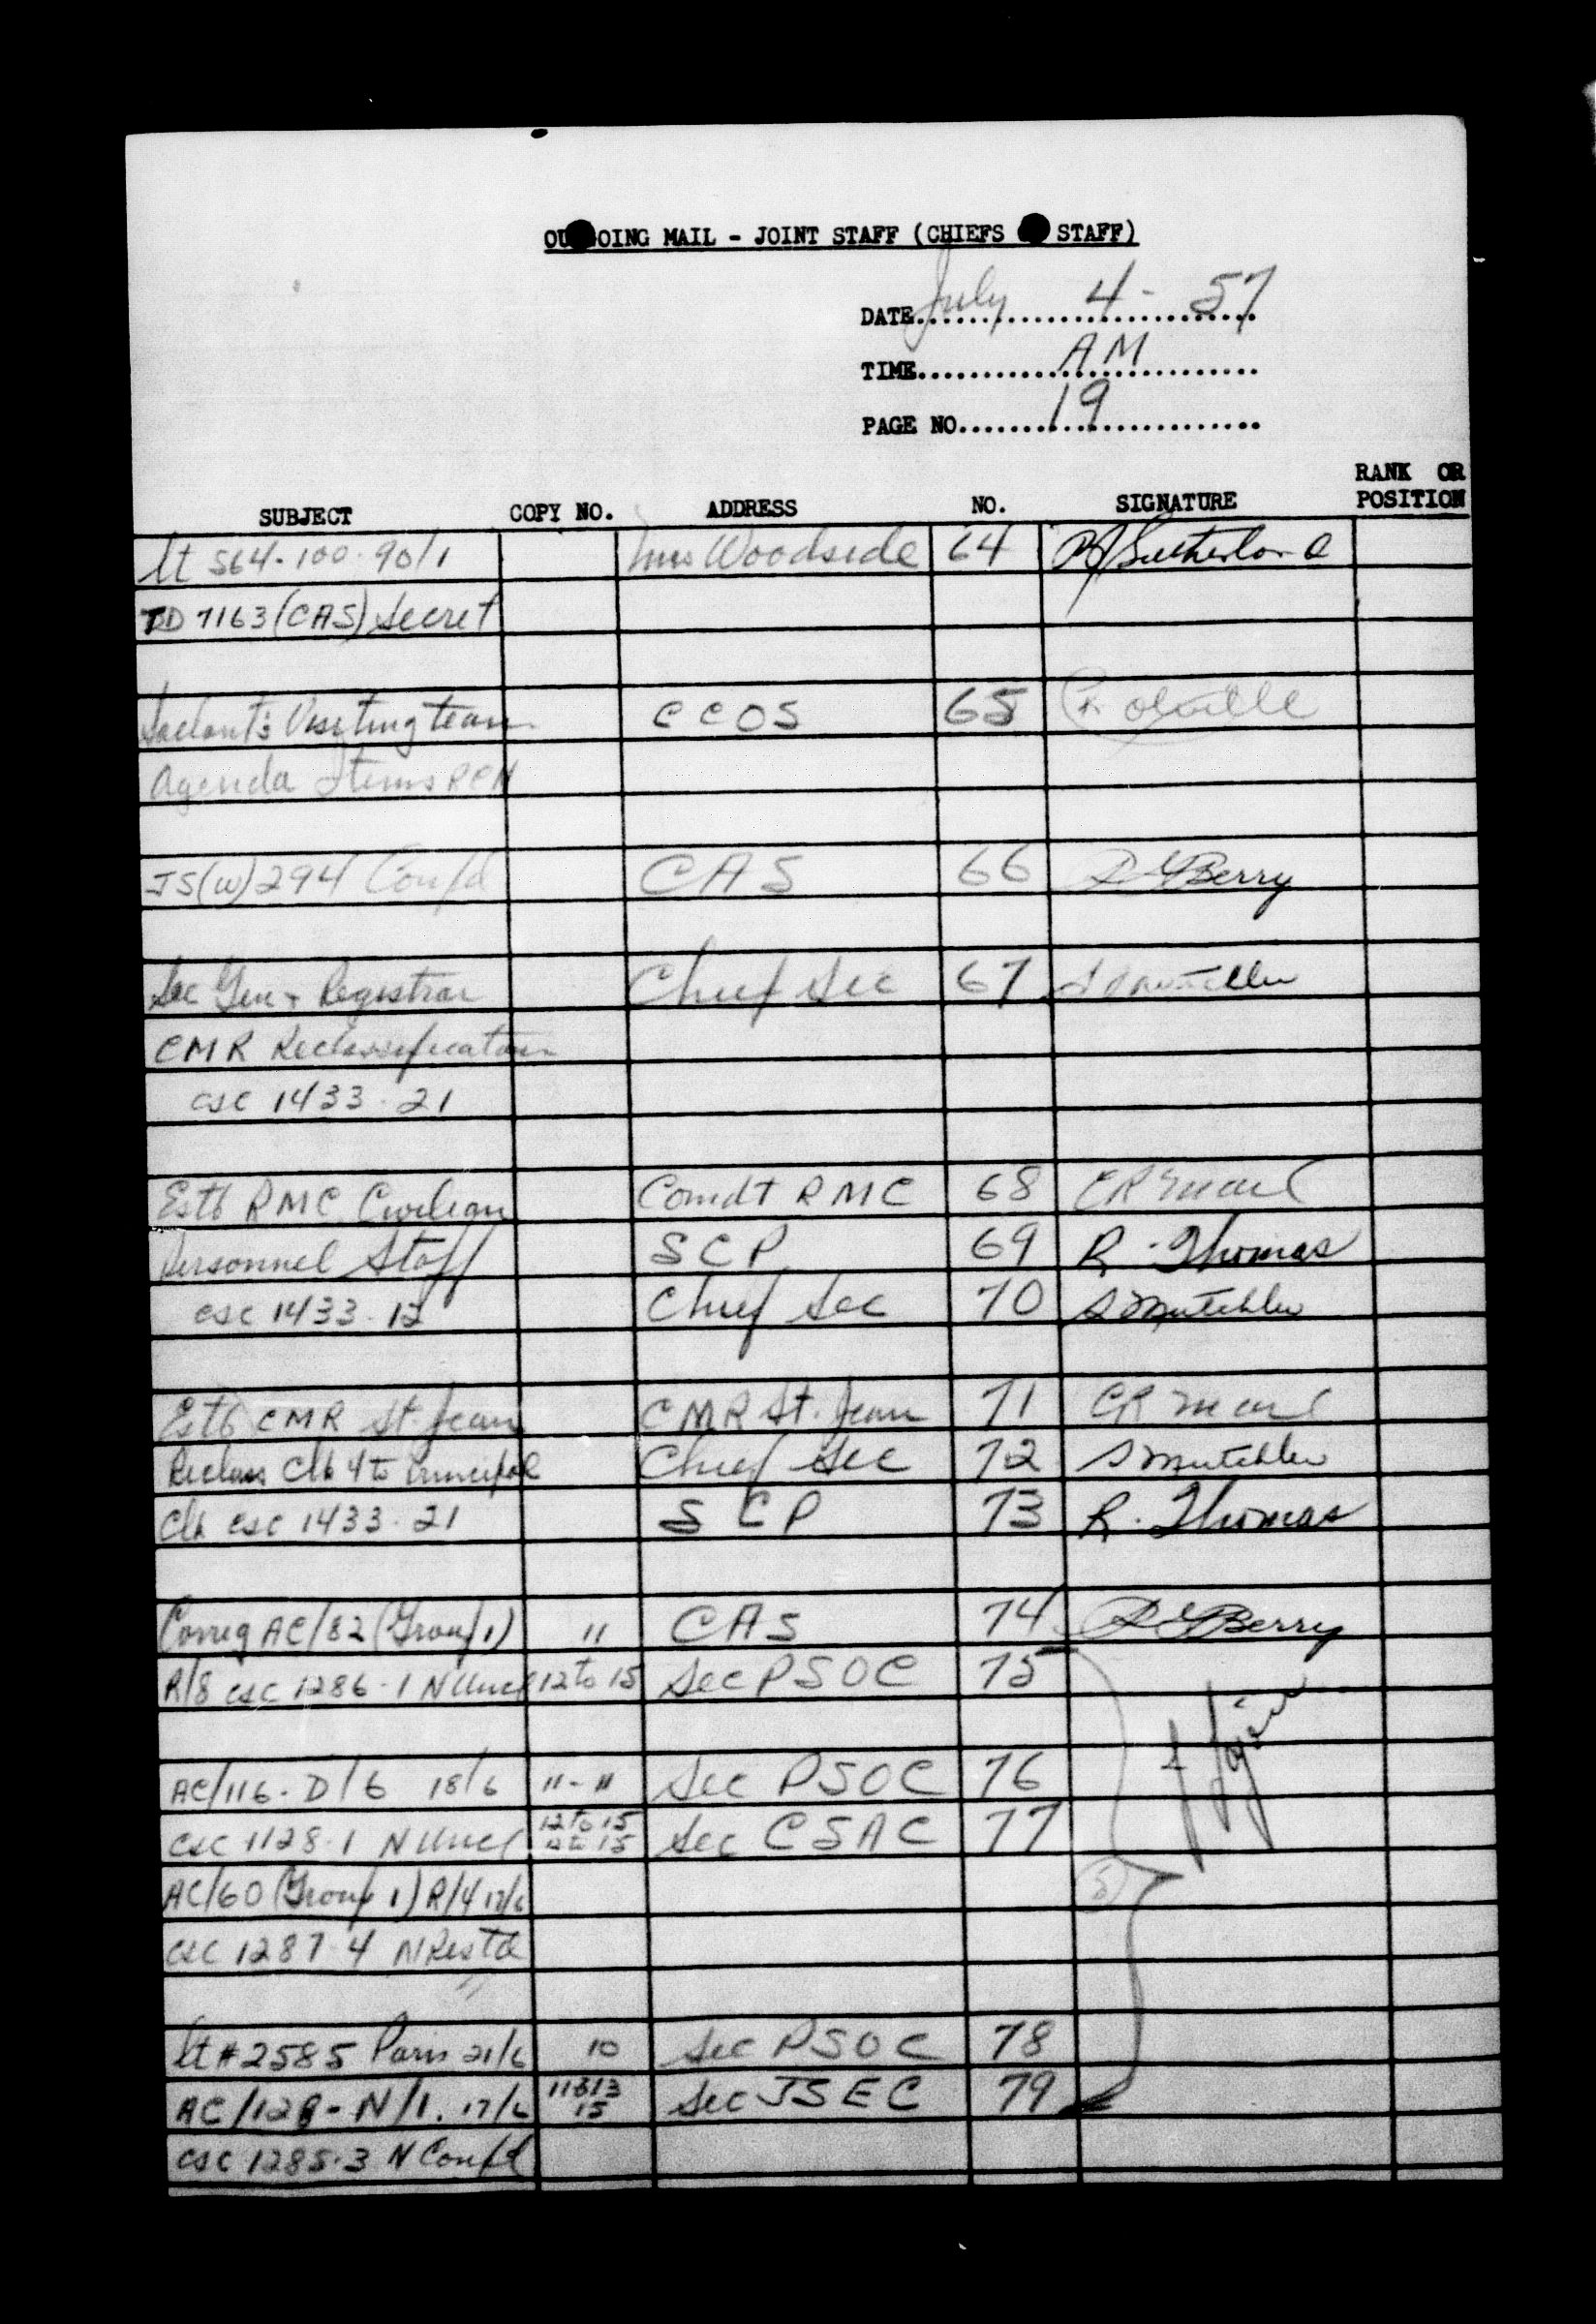 OUTGOING MAIL - JOINT STAFF (CHIEFS OF STAFF)
DATE July 4 - 57
TIME AM
PAGE NO. 19
SUBJECT COPY NO. ADDRESS NO. SIGNATURE RANK OR POSITION
lt 564-100-90/1 Mrs Woodside 64 Sutherland
TD 7163 (CAS) Secret
Saclant's Visiting team CCOS 65
Agenda Items RCN
JS(W) 294 Confd CAS 66 Berry
Sec Gen + Registrar Chief Sec 67
CMR Reclassification
csc 1433-21
Estb RMC Civilian Comdt RMC 68
Personnel Staff SCP 69 R. Thomas
csc 1433-12 Chief Sec 70 S Mutchler
Estb CMR St. Jean CMR St. Jean 71
Reclass Clk 4 to Principal Chief Sec 72 S Mutchler
Clk csc 1433-21 SCP 73 R. Thomas
Corrig AC/82 (Group 1) 11 CAS 74 Berry
R/8 csc 1286-1 N Uncl 12 to 15 Sec PSOC 75
AC/116-D/6 18/6 11-11 Sec PSOC 76
12 to 15
csc 1128-1 N Uncl 12 to 15 Sec CSAC 77
AC/60 (Group 1) R/4
csc 1287-4 N Restd
lt #2585 Paris 21/6 10 Sec PSOC 78
AC/128-N/1. 17/6 15 Sec JSEC 79
csc 1285-3 N Confd